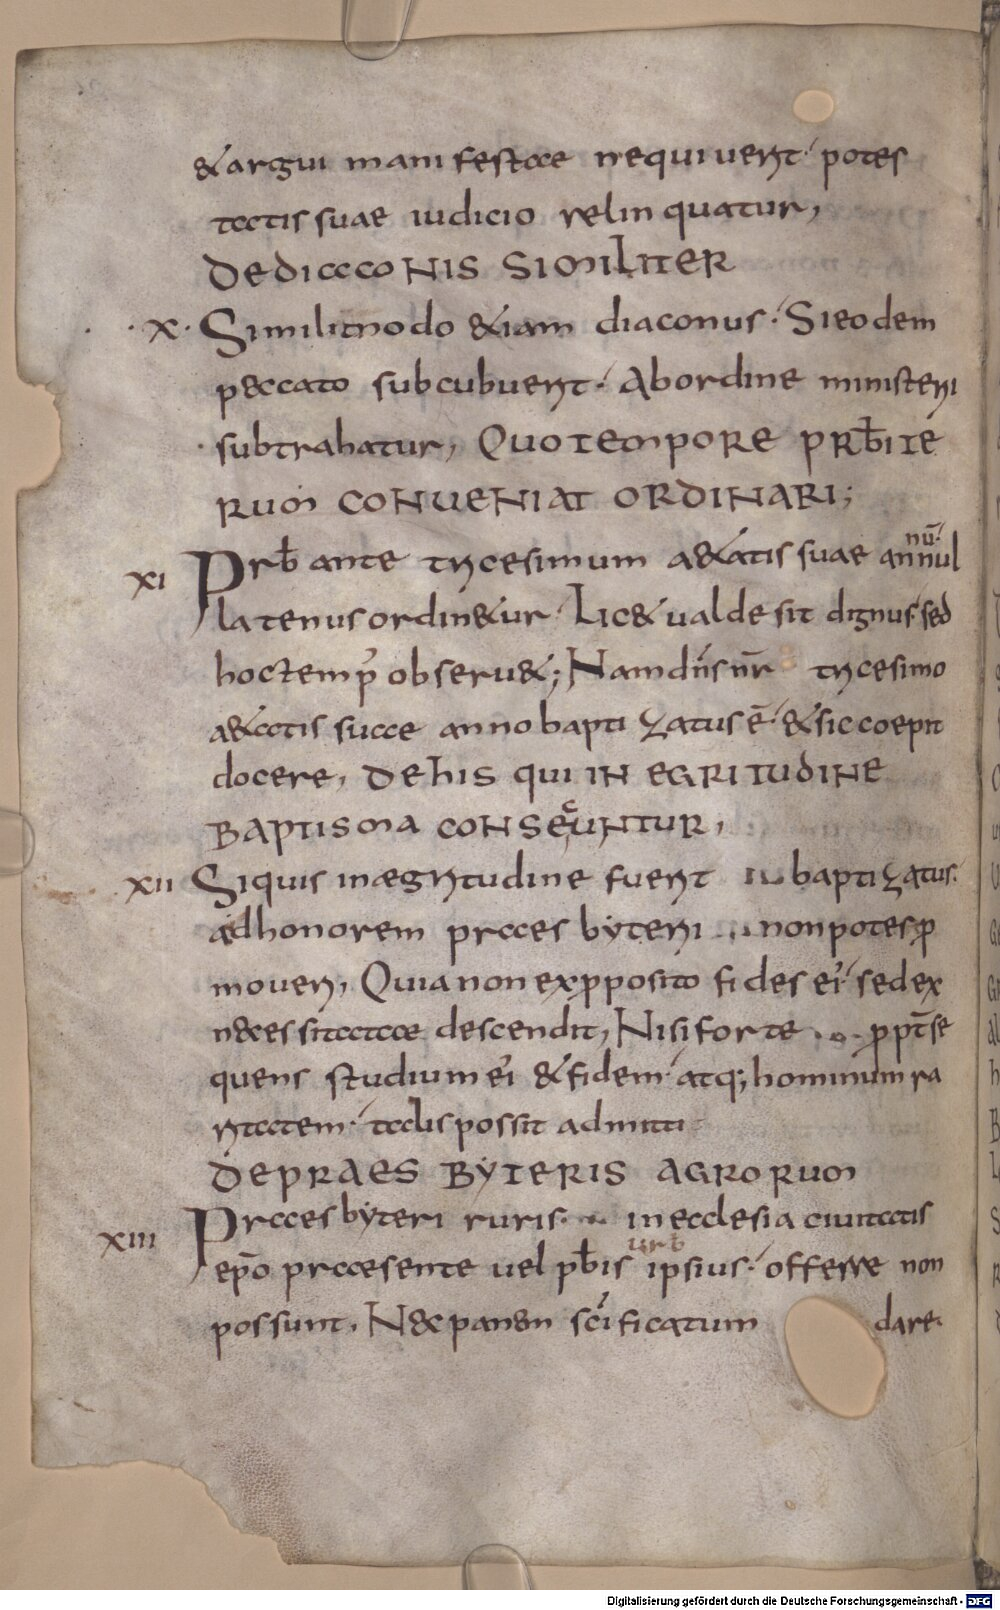 &argui manifestae nequiuer̄t· potes
tatis suae iudicio relinquatur,
DE DIACONIS SIMILITER
·X· Similimodo &iam diaconus· Si eodem
peccato subcubuerit· Ab ordine ministeri
subtrahatur, QUO TEMPORE PRB̄ITE
RUM CONUENIAT ORDINARI;
XI Prb̄ ante tricesimum a&atis suae annū nul
latenus ordin&ur· Lic& ualde sit dignus· sed
hoc temp̓ obseru&; Nam dn̄s nr̄ tricesimo
a&atis suae anno baptizatus ē· & sic coepit
docere, DE HIS QUI IN EGRITUDINE
BAPTISMA CONSEQUNTUR,
XII Si quis in ægritudine fuerit baptizatus·
ad honorem praesbyteri non potest p̱ro
moueri, Quia non ex p̱roposito fides ei̓· sed ex
n&essitatae descendit, Nisi forte p̱ropt̄ se
quens studium ei̓ & fidem· atq; hominum ra
ritatem· talis possit admitti
DE PRAESBYTERIS AGRORUM
XIII Praesbyteri ruris· in ecclesia ciuitatis
ep̄o praesente uel p̄b̄is urb ipsius· offerre non
possunt, Nec panem sc̄ificatum dare·
Digitalisierung gefördert durch die Deutsche Forschungsgemeinschaft - DFG